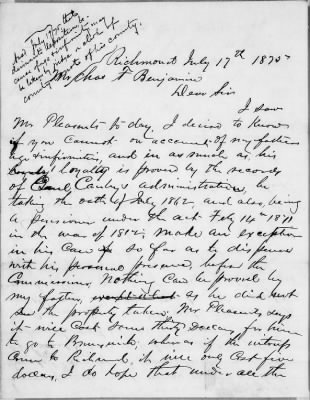 Ansd July 19, 75, that
desired the deposition be
cause of age & infirmities may
be taken by Judge or clerk of
county court of his county.
Richmond July 17th 1875
Mr Chas F Benjamin
Dear Sir
I saw
Mr Pleasants to day. I desire to know
if you cannot on account of my fathers
age & infirmities, and in as much as his
loyalty is proved by the records
of Canby's administration, he
taking the oath of July 1862, and also, being
a pensioner under the act Feby 14th 1871
in the war of 1812, make an exception
in his case so far as to dispense
with his personal presence, before the
Commissioners. Nothing can be proved by
my father, as he did not
see the property taken. Mr Pleasants says
it will cost some thirty dollars for him
to go to Brunswick, whereas if the witness
come to Richmond, it will only cost five
dollars, I do hope that under all the